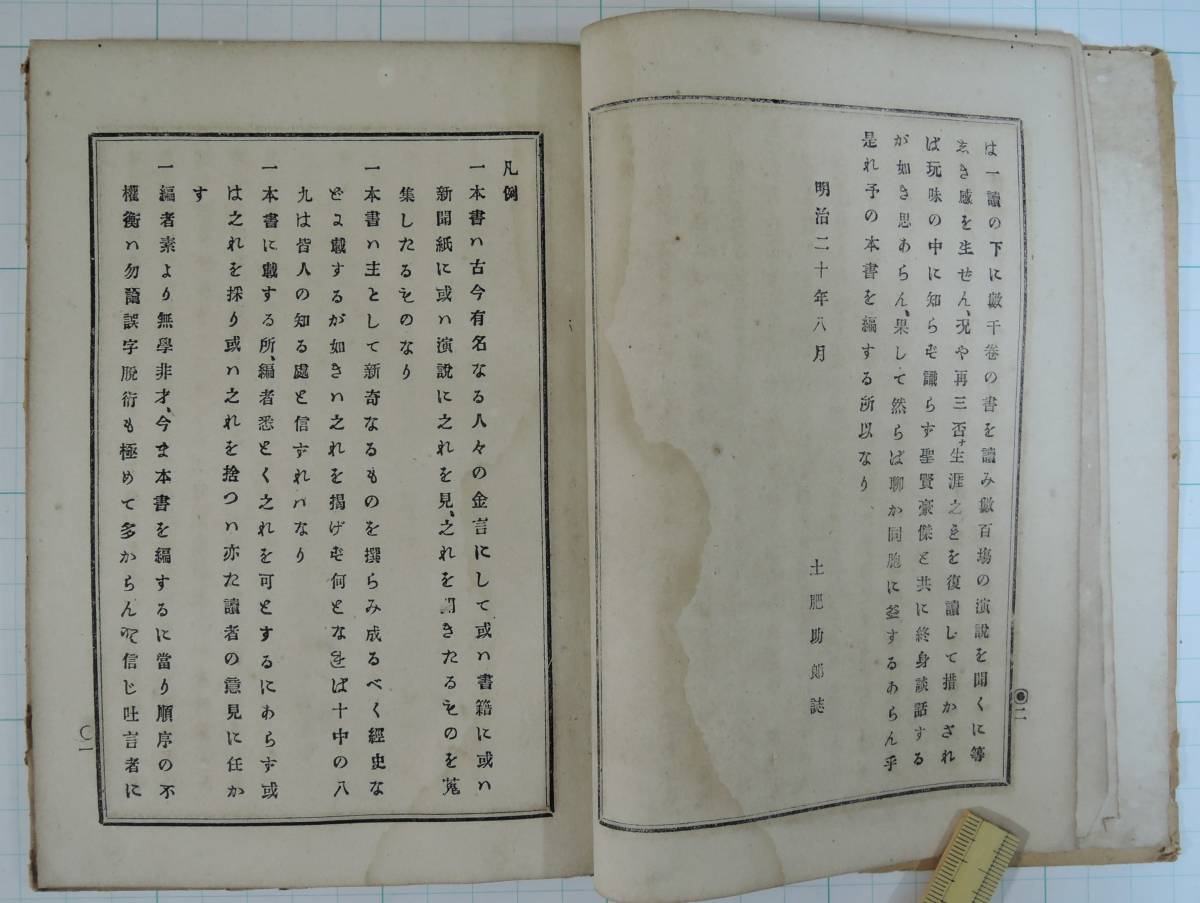 は一讀の下に數千卷の書を讀み數百塲の演說を聞くに等
ゑき感を生せん、况や再三否ナ生涯之を復讀して措かざれ
ば玩味の中に知らず識らず聖賢豪傑と共に終身談話する
が如き思あらん、果して然らば聊か同胞に益するあらん乎
是れ予の本書を編する所以なり
明治二十年八月
土肥助郎誌
二
凡例
一本書ハ古今有名なる人々の金言にして或ハ書籍に或ハ
新聞紙に或ハ演說に之れを見、之れを聞きたるものを蒐
集したるものなり
一本書ハ主として新奇なるものを撰らみ成るべく經史な
どに載するが如きハ之れを揭げず何となれば十中の八
九は皆人の知る處と信ずれハなり
一本書に載する所、編者悉とく之れを可とするにあらず或
は之れを採り或ハ之れを捨つハ亦た讀者の意見に任か
す
一編者素より無學非才、今ま本書を編するに當り順序の不
權衡ハ勿論誤字脫衍も極めて多からん 信じ吐言者に
〇一